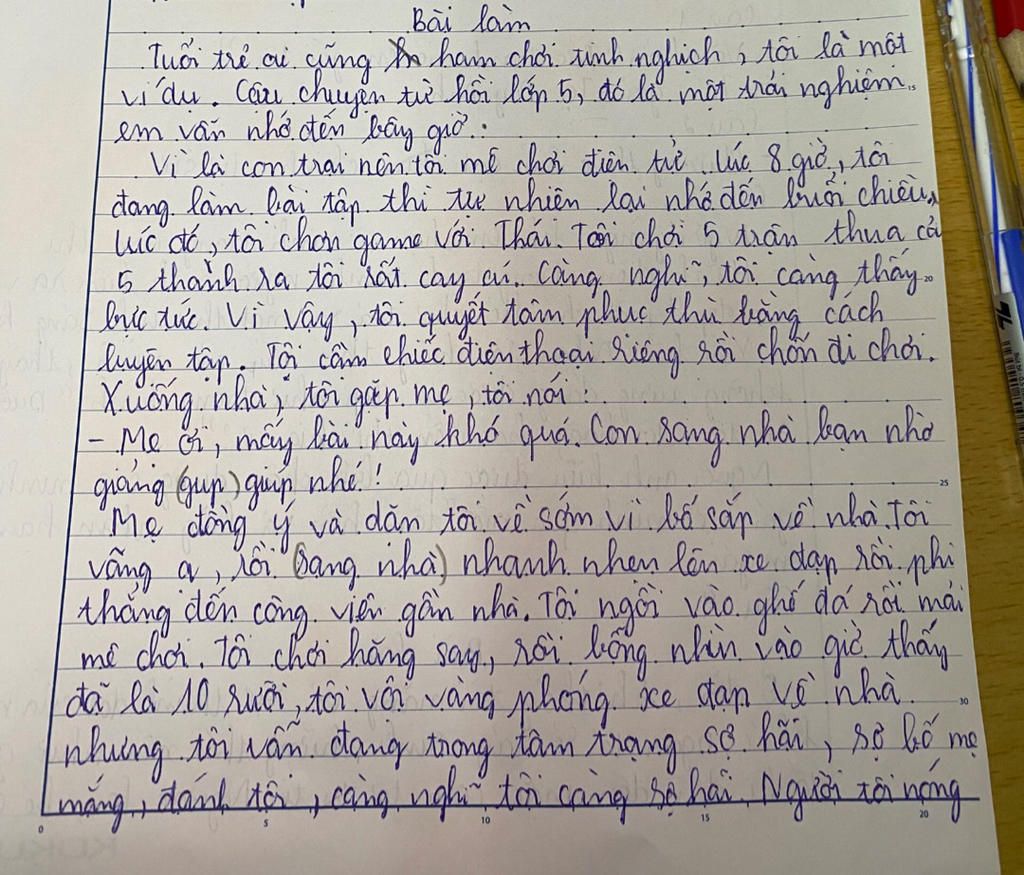 Bài làm
Tuổi trẻ ai cũng ham chơi tinh nghịch, tôi là một
ví dụ. Câu chuyện từ hồi lớp 5, đó là một trải nghiệm
em vẫn nhớ đến bây giờ.
Vì là con trai nên tôi mê chơi điện tử. Lúc 8 giờ, tôi
đang làm bài tập thì tự nhiên lại nhớ đến buổi chiều,
lúc đó, tôi chơn game với Thái. Tôi chơi 5 trận thua cả
5 thành ra tôi rất cay cú. Càng nghĩ, tôi càng thấy
bực tức. Vì vậy, tôi quyết tâm phục thù bằng cách
luyện tập. Tôi cầm chiếc điện thoại riêng rồi chốn đi chơi.
Xuống nhà, tôi gặp mẹ, tôi nói:
- Mẹ ơi, mấy bài này khó quá. Con sang nhà bạn nhờ
giảng (gup) giúp nhé!
Mẹ đồng ý và dặn tôi về sớm vì bố sắp về nhà. Tôi
vâng ạ, rồi (sang nhà) nhanh nhẹn lên xe đạp rồi phi
thẳng đến công viên gần nhà. Tôi ngồi vào ghế đá rồi mải
mê chơi. Tôi chơi hăng say, rồi bỗng nhìn vào giờ thấy
đã là 10 rưỡi, tôi vội vàng phóng xe đạp về nhà
nhưng tôi vẫn đang trong tâm trạng sợ hãi, sợ bố mẹ
mắng, đánh tôi, càng nghĩ tôi càng sợ hãi. Người tôi nóng